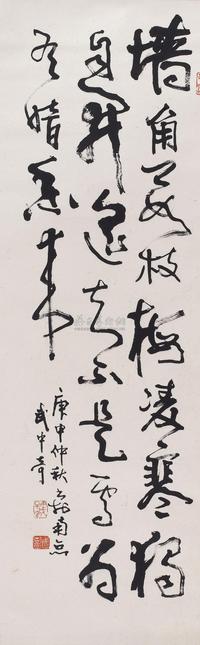 墙角数枝梅凌寒獨
自开遥知不是雪为
有暗香来
庚申仲秋书于南京
武中奇